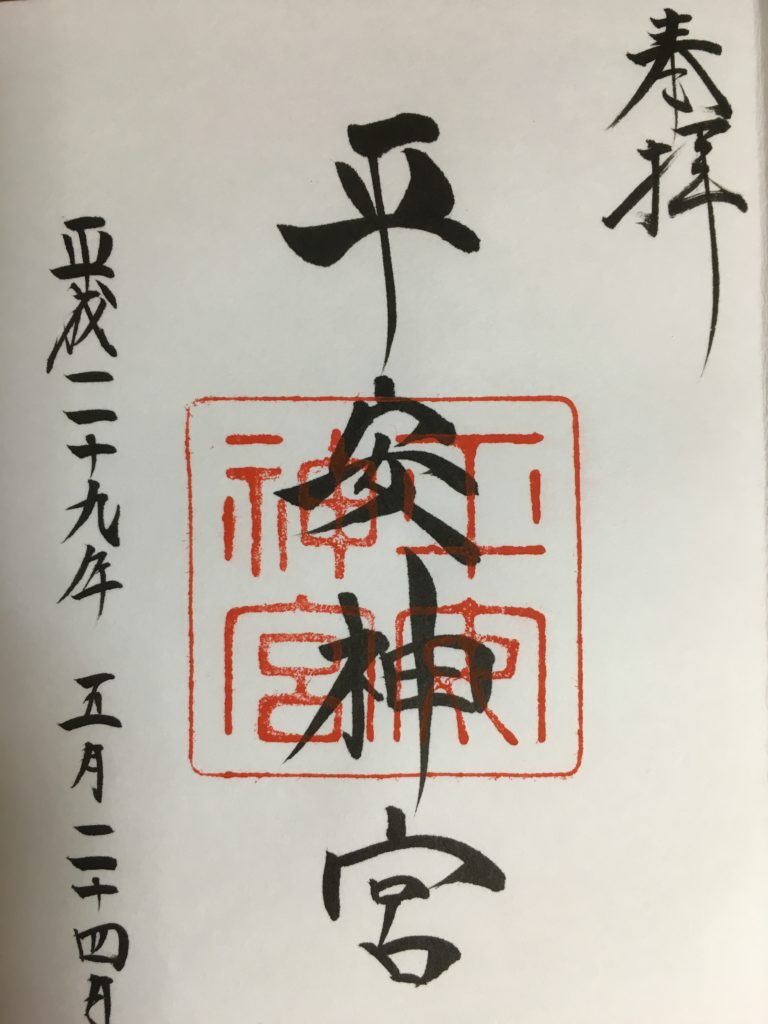 奉拝
平安神宮
平安神宮
平成二十九年 五月二十四日